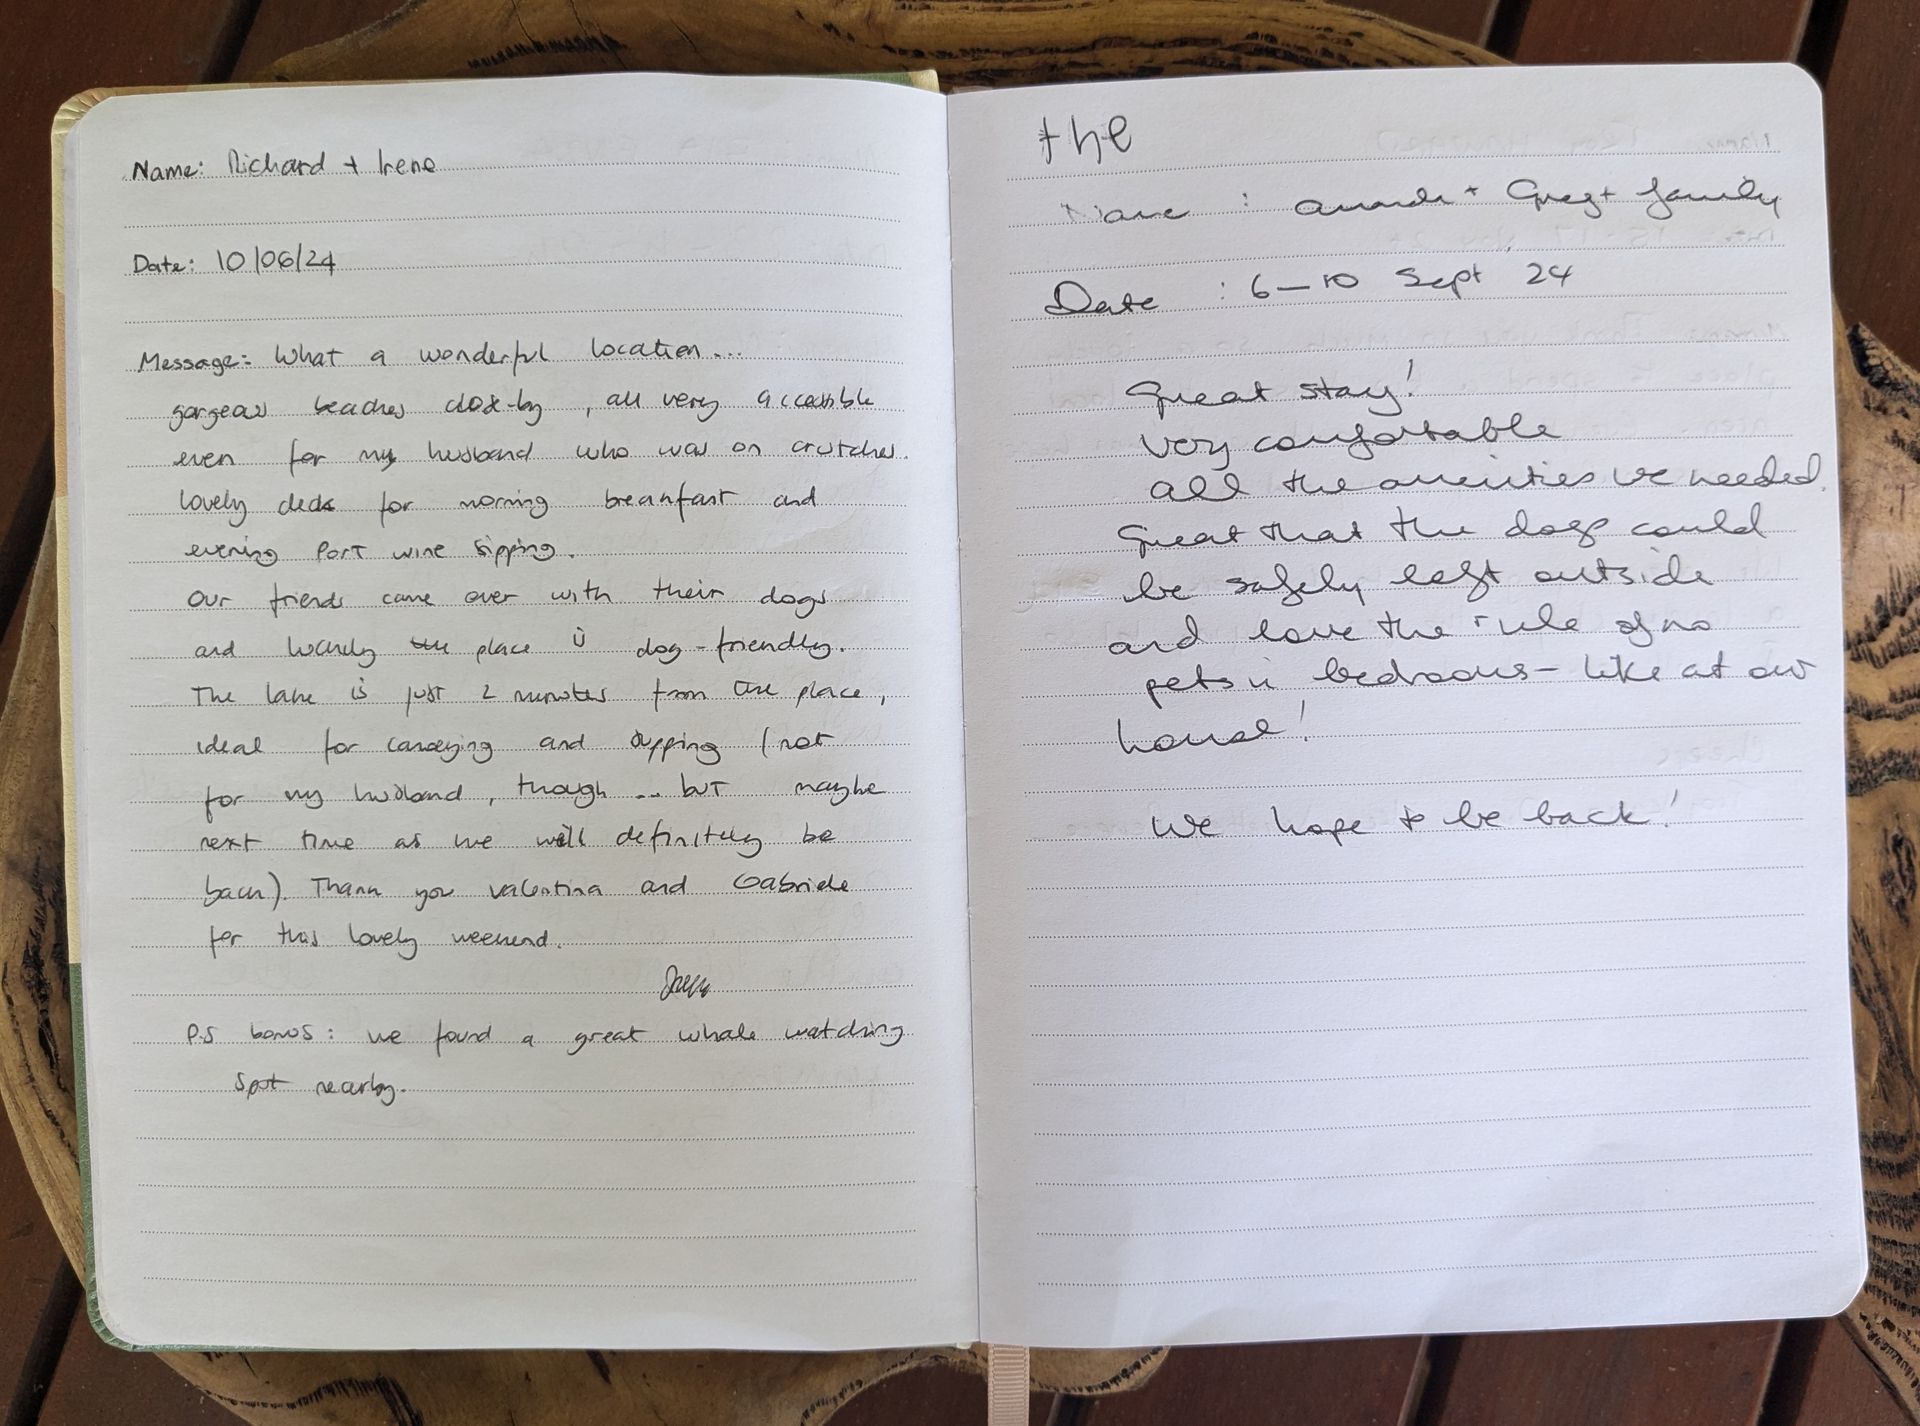 Name: Richard + Irene
Date: 10/06/24
Message: What a wonderful location...
gorgeous beaches close-by, all very accessible
even for my husband who was on crutches.
Lovely deck for morning breakfast and
evening Port wine sipping.
Our friends came over with their dogs
and luckily the place is dog-friendly.
The lake is just 2 minutes from the place,
ideal for canoeying and dipping (not
for my husband, though... but maybe
next time as we will definitely be
back). Thank you Valentina and Gabriele
for this lovely weekend.
PS bonus: we found a great whale watching
spot nearby.
the
Name : + Greg + family
Date : 6-10 Sept 24
Great stay!
Very comfortable
All the amenities we needed.
Great that the dogs could
be safely left outside
and love the rule of no
pets in bedrooms - like at our
house!
We hope to be back!